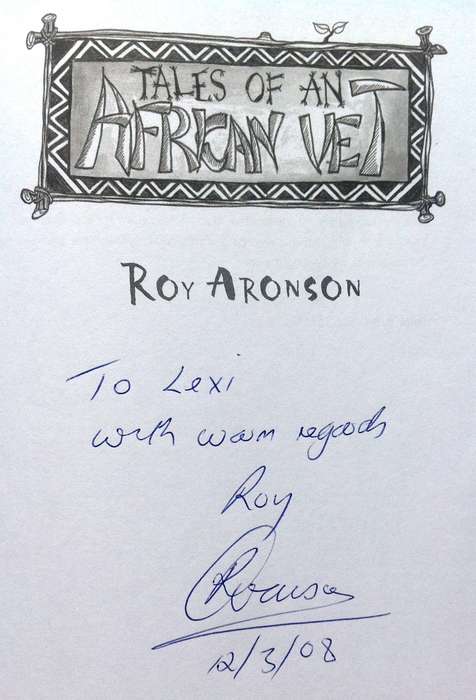 TALES OF AN
AFRICAN VET
ROY ARONSON
To Lexi
with warm regards
Roy
RAronson
12/3/08